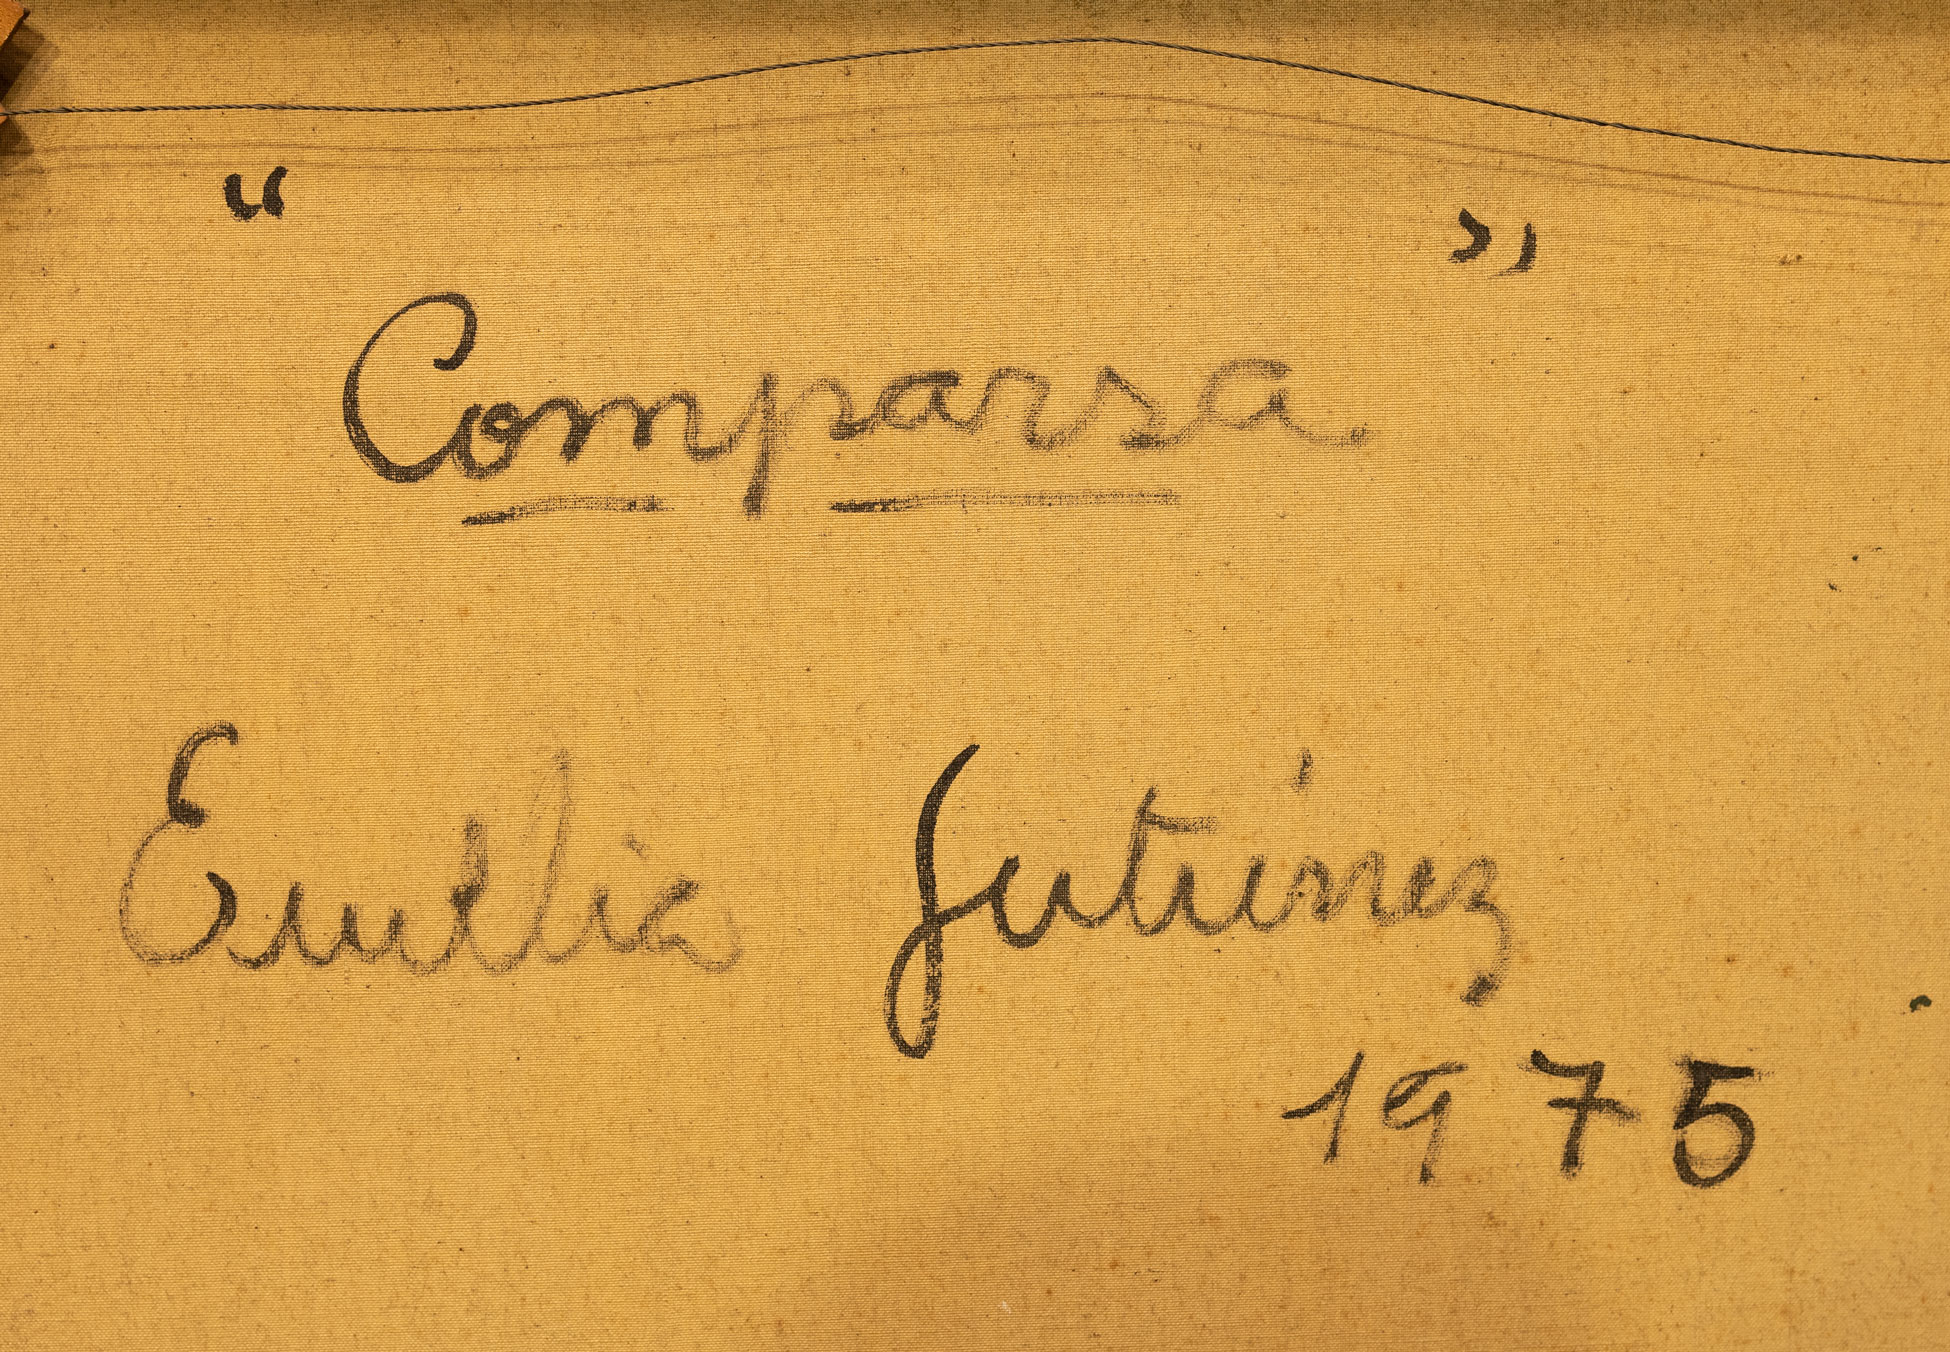 “Comparsa”
Emilia Gutiérrez
1975